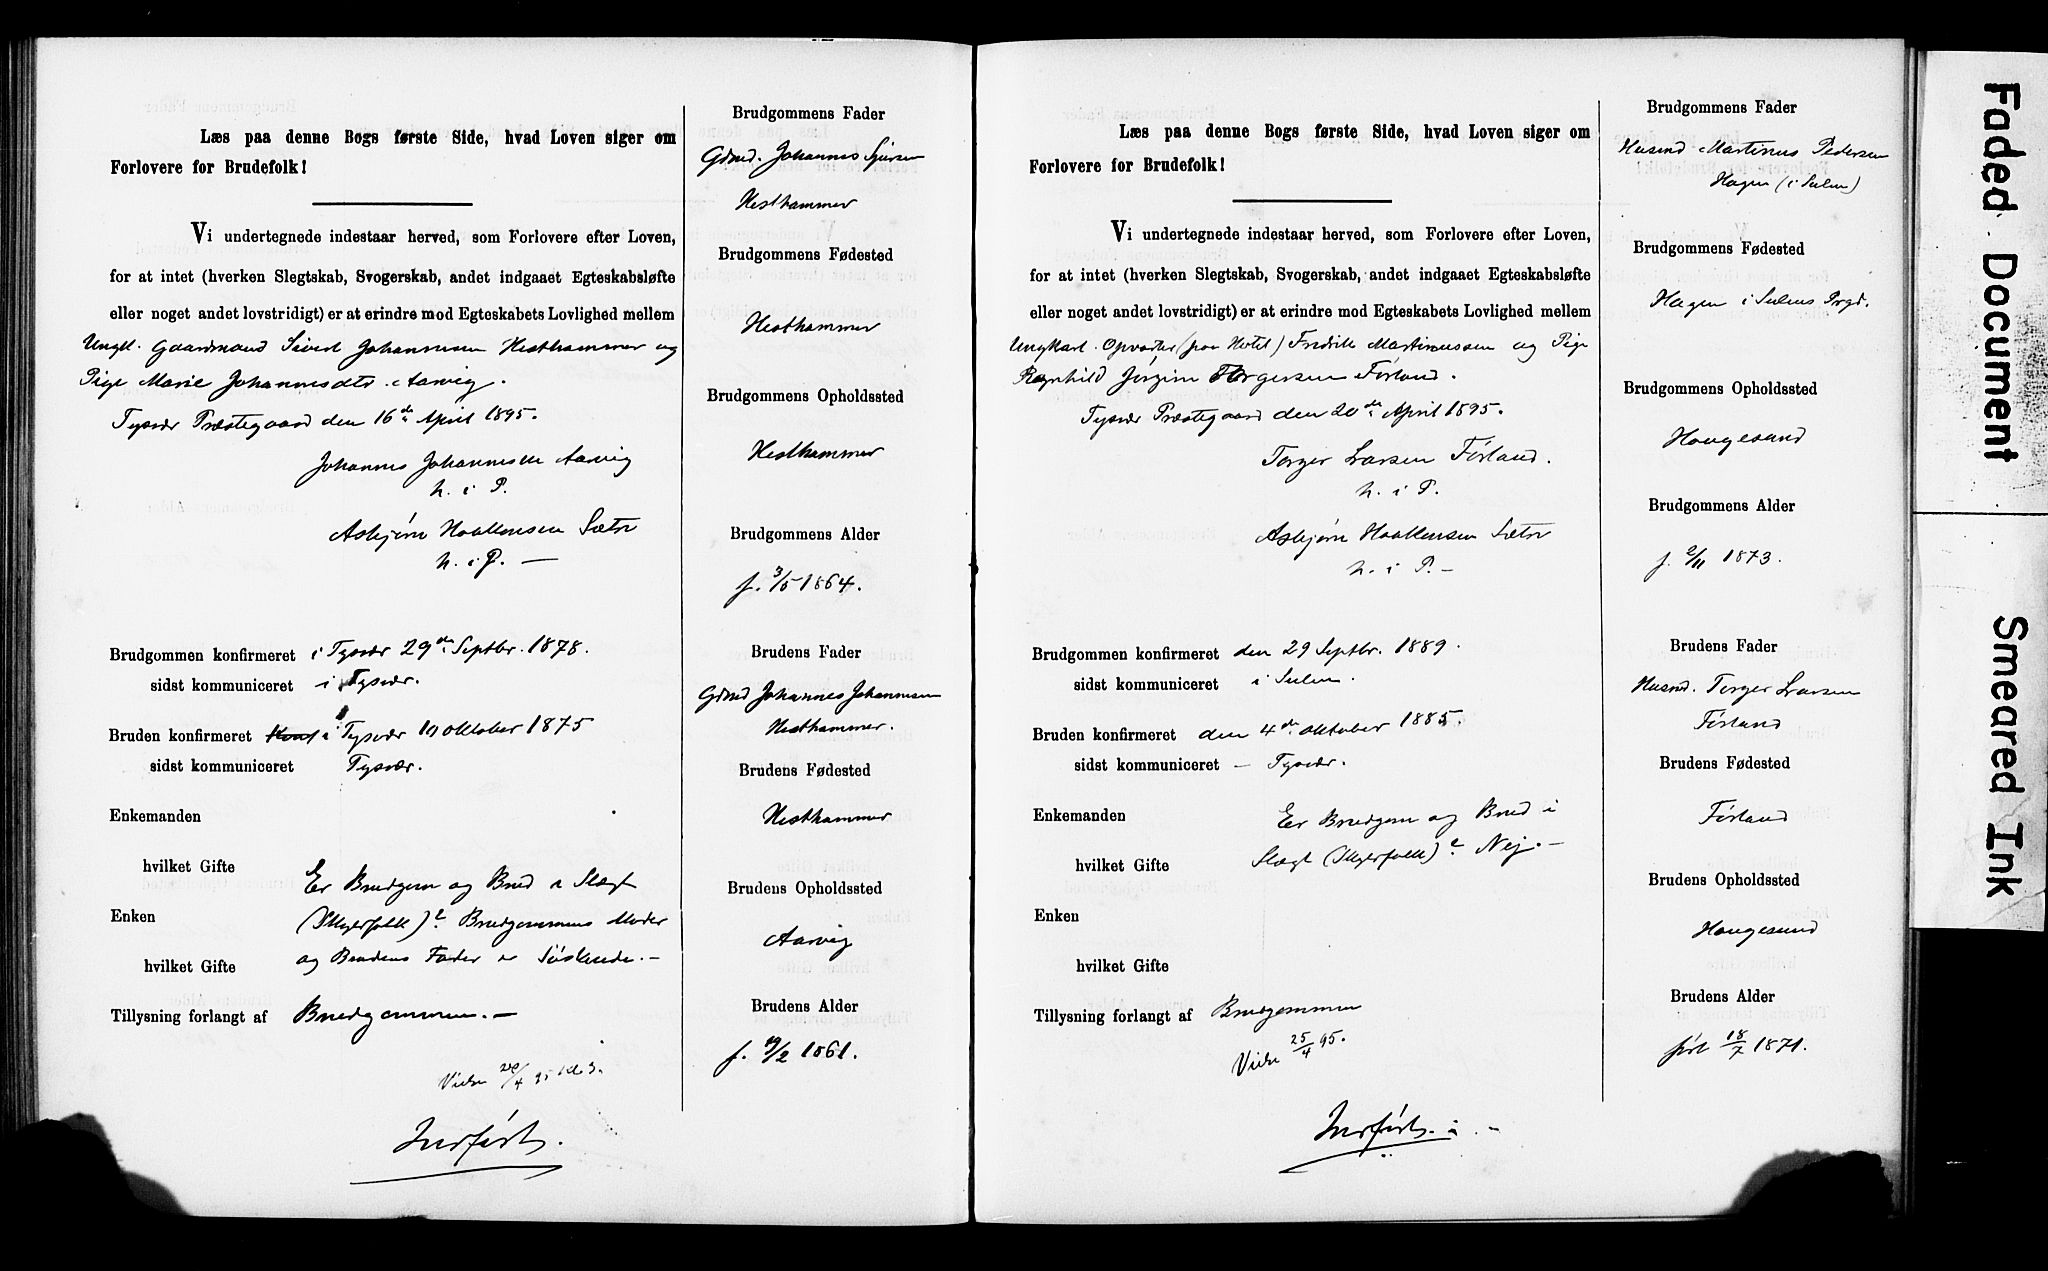 Læs paa denne Bogs første Side, hvad Loven siger om
Forlovere for Brudefolk!
Vi undertegnede indestaar herved, som Forlovere efter Loven,
for at intet (hverken Slegtskab, Svogerskab, andet indgaaet Egteskabsløfte
eller noget andet lovstridigt) er at erindre mod Egteskabets Lovlighed mellem
Ungk. Gaardmand Sivert Johannesen Hesthammer og
Pige Marie Johannesdtr. Aarvig.
Tysvær Præstegaard den 16de April 1895.
Johannes Johannesen Aarvig
h. i P.
Asbjørn Haakensen Sætr
h. i P. —
Brudgommen konfirmeret i Tysvær 29de Septbr. 1878.
sidst kommuniceret i Tysvær.
Bruden konfirmeret i Tysvær 10 oktober 1875
sidst kommuniceret Tysvær.
Enkemanden
hvilket Gifte
Er Brudgom og Brud i Slægt
Enken
(Skyerfolk)? Brudgommens Moder
og Brudens Fader er Søskende. —
hvilket Gifte
Tillysning forlangt af Brudgommen. —
Vielse 20/4 95 kl 3.
Indført.
Brudgommens Fader
Gdmd. Johannes Sjursen
Hesthammer
Brudgommens Fødested
Hesthammer
Brudgommens Opholdssted
Hesthammer
Brudgommens Alder
f. 3/5 1864.
Brudens Fader
Gdmd Johannes Johannesen
Hesthammer.
Brudens Fødested
Hesthammer
Brudens Opholdssted
Aarvig
Brudens Alder
f. /2 1861.
Læs paa denne Bogs første Side, hvad Loven siger om
Forlovere for Brudefolk!
Vi undertegnede indestaar herved, som Forlovere efter Loven,
for at intet (hverken Slegtskab, Svogerskab, andet indgaaet Egteskabsløfte
eller noget andet lovstridigt) er at erindre mod Egteskabets Lovlighed mellem
Ungkarl. Opvarter (paa Hotel) Fredrik Martinussen og Pige
Ragnhild Jørgine Torgersen Førland.
Tysvær Præstegaard den 20de April 1895.
Torger Larsen Førland.
h. i P.
Asbjørn Haakensen Sætr
h. i P. —
Brudgommen konfirmeret den 29 Septbr. 1889.
sidst kommuniceret i Sulen.
Bruden konfirmeret den 4de oktober 1885.
sidst kommuniceret — Tysvær.
Enkemanden
Er Brudgom og Brud i
hvilket Gifte
Slægt (Skyerfolk)? Nej. —
Enken
hvilket Gifte
Tillysning forlangt af Brudgommen
Vielse 25/4 95.
Indført.
Brudgommens Fader
Husmd Martinus Pedersen
Hagen (i Sulen)
Brudgommens Fødested
Hagen i Sulens Prgd.
Brudgommens Opholdssted
Haugesund
Brudgommens Alder
f. 2/11 1873.
Brudens Fader
Husmd. Torger Larsen
Førland
Brudens Fødested
Førland
Brudens Opholdssted
Haugesund
Brudens Alder
født 18/7 1871.
Faded Document
Smeared Ink